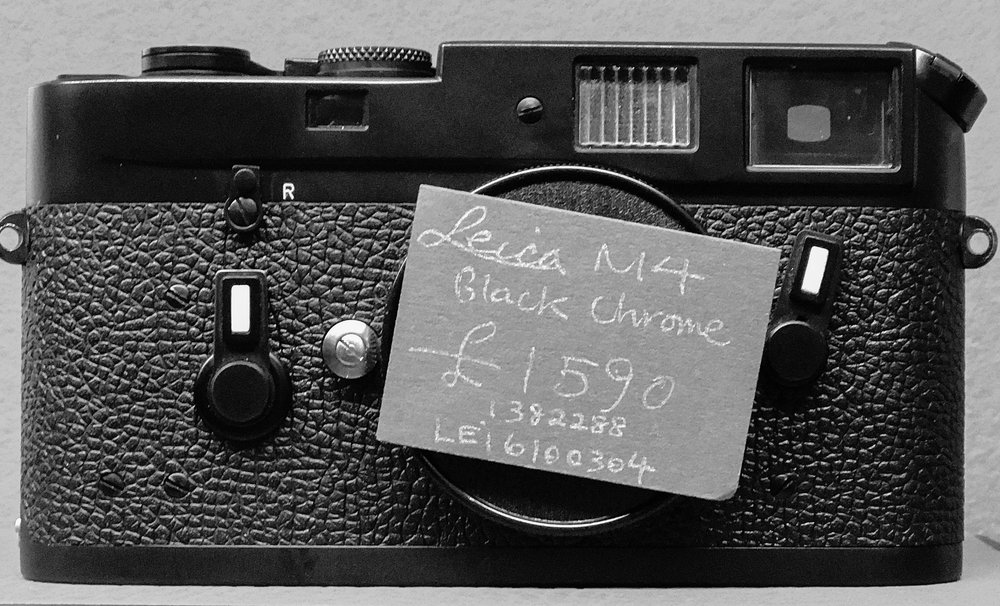 R
Leica M4
Black Chrome
£1590
1382288
LE16100304